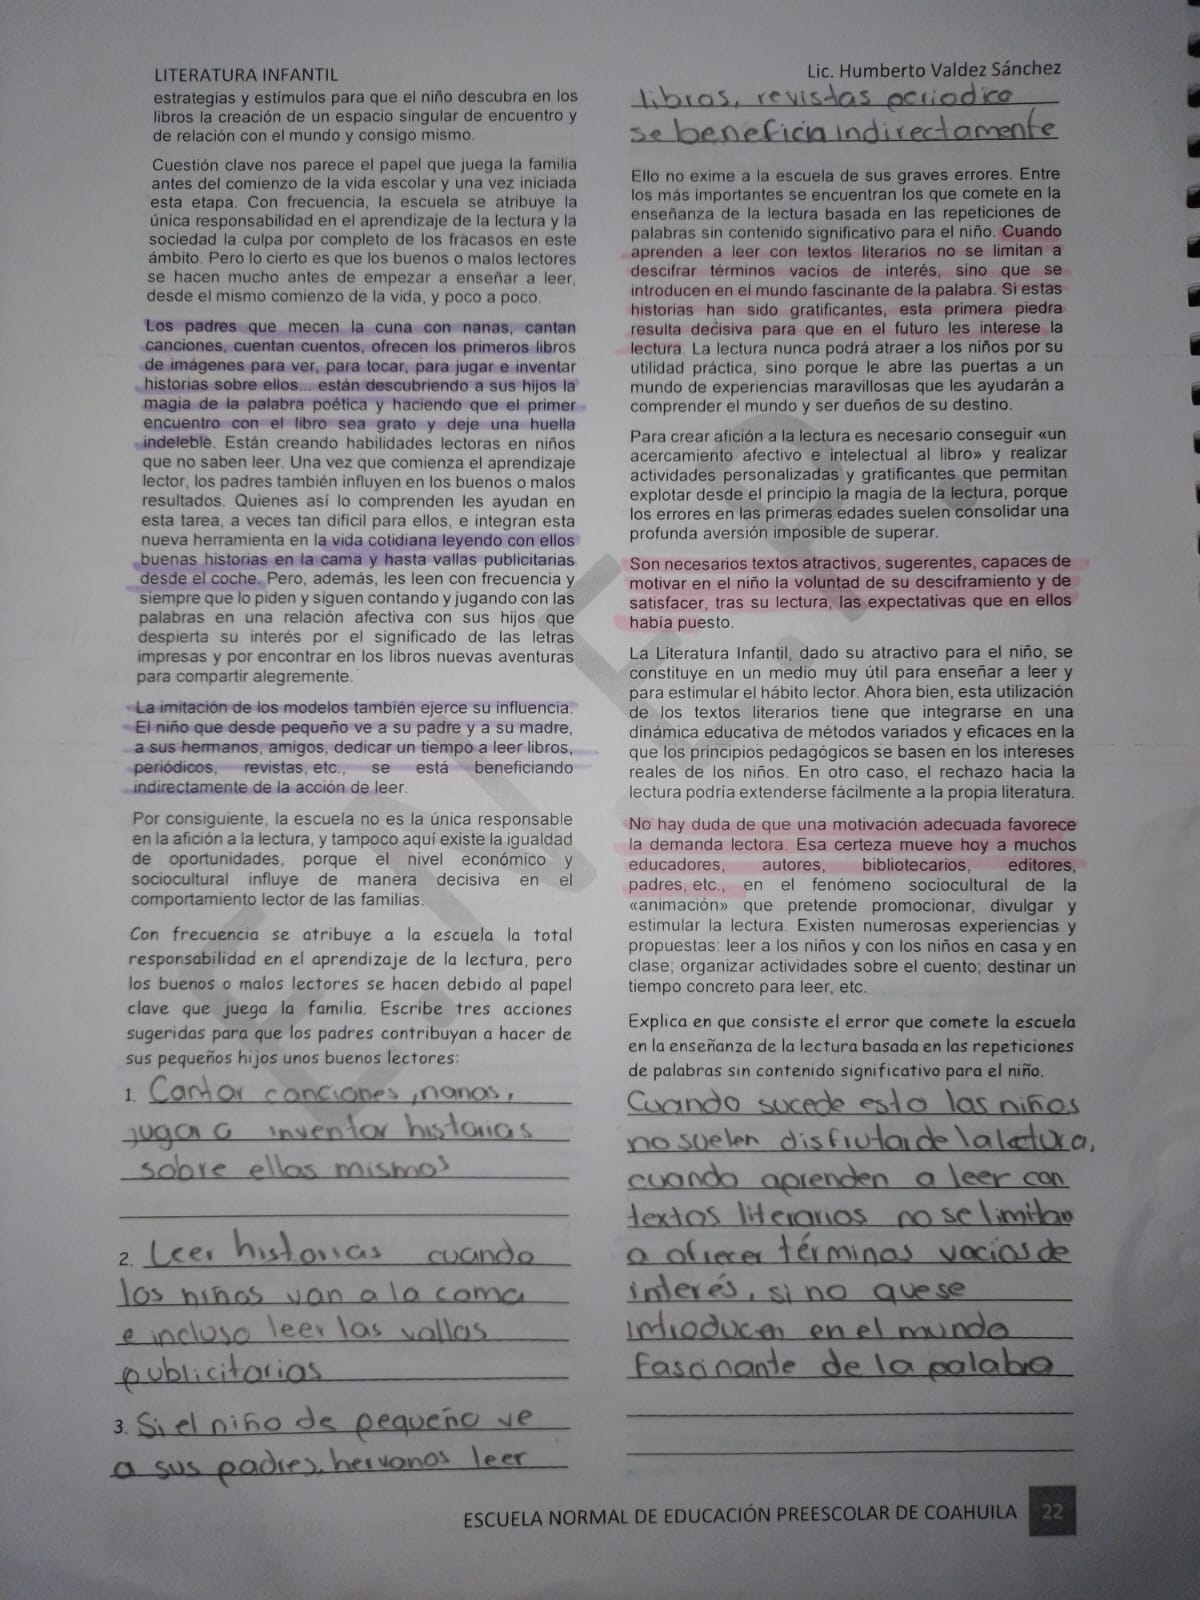 LITERATURA INFANTIL
Lic. Humberto Valdez Sánchez
estrategias y estímulos para que el niño descubra en los
libros la creación de un espacio singular de encuentro y
de relación con el mundo y consigo mismo.
Cuestión clave nos parece el papel que juega la familia
antes del comienzo de la vida escolar y una vez iniciada
esta etapa. Con frecuencia, la escuela se atribuye la
única responsabilidad en el aprendizaje de la lectura y la
sociedad la culpa por completo de los fracasos en este
ámbito. Pero lo cierto es que los buenos o malos lectores
se hacen mucho antes de empezar a enseñar a leer,
desde el mismo comienzo de la vida, y poco a poco.
Los padres que mecen la cuna con nanas, cantan
canciones, cuentan cuentos, ofrecen los primeros libros
de imágenes para ver, para tocar, para jugar e inventar
historias sobre ellos... están descubriendo a sus hijos la
magia de la palabra poética y haciendo que el primer
encuentro con el libro sea grato y deje una huella
indeleble. Están creando habilidades lectoras en niños
que no saben leer. Una vez que comienza el aprendizaje
lector, los padres también influyen en los buenos o malos
resultados. Quienes así lo comprenden les ayudan en
esta tarea, a veces tan difícil para ellos, e integran esta
nueva herramienta en la vida cotidiana leyendo con ellos
buenas historias en la cama y hasta vallas publicitarias
desde el coche. Pero, además, les leen con frecuencia y
siempre que lo piden y siguen contando y jugando con las
palabras en una relación afectiva con sus hijos que
despierta su interés por el significado de las letras
impresas y por encontrar en los libros nuevas aventuras
para compartir alegremente.
La imitación de los modelos también ejerce su influencia.
El niño que desde pequeño ve a su padre y a su madre,
a sus hermanos, amigos, dedicar un tiempo a leer libros,
periódicos, revistas, etc., se está beneficiando
indirectamente de la acción de leer.
Por consiguiente, la escuela no es la única responsable
en la afición a la lectura, y tampoco aquí existe la igualdad
de oportunidades, porque el nivel económico y
sociocultural influye de manera decisiva en el
comportamiento lector de las familias.
Con frecuencia se atribuye a la escuela la total
responsabilidad en el aprendizaje de la lectura, pero
los buenos o malos lectores se hacen debido al papel
clave que juega la familia. Escribe tres acciones
sugeridas para que los padres contribuyan a hacer de
sus pequeños hijos unos buenos lectores:
1. Cantar canciones, nanas,
jugar a inventar historias
sobre ellos mismos
2. Leer historias cuando
los niños van a la cama
e incluso leer las vallas
publicitarias
3. Si el niño de pequeño ve
a sus padres, hervanos leer
libros, revistas periodico
se beneficia indirectamente
Ello no exime a la escuela de sus graves errores. Entre
los más importantes se encuentran los que comete en la
enseñanza de la lectura basada en las repeticiones de
palabras sin contenido significativo para el niño. Cuando
aprenden a leer con textos literarios no se limitan a
descifrar términos vacíos de interés, sino que se
introducen en el mundo fascinante de la palabra. Si estas
historias han sido gratificantes, esta primera piedra
resulta decisiva para que en el futuro les interese la
lectura. La lectura nunca podrá atraer a los niños por su
utilidad práctica, sino porque le abre las puertas a un
mundo de experiencias maravillosas que les ayudarán a
comprender el mundo y ser dueños de su destino.
Para crear afición a la lectura es necesario conseguir «un
acercamiento afectivo e intelectual al libro» y realizar
actividades personalizadas y gratificantes que permitan
explotar desde el principio la magia de la lectura, porque
los errores en las primeras edades suelen consolidar una
profunda aversión imposible de superar.
Son necesarios textos atractivos, sugerentes, capaces de
motivar en el niño la voluntad de su desciframiento y de
satisfacer, tras su lectura, las expectativas que en ellos
había puesto.
La Literatura Infantil, dado su atractivo para el niño, se
constituye en un medio muy útil para enseñar a leer y
para estimular el hábito lector. Ahora bien, esta utilización
de los textos literarios tiene que integrarse en una
dinámica educativa de métodos variados y eficaces en la
que los principios pedagógicos se basen en los intereses
reales de los niños. En otro caso, el rechazo hacia la
lectura podría extenderse fácilmente a la propia literatura.
No hay duda de que una motivación adecuada favorece
la demanda lectora. Esa certeza mueve hoy a muchos
educadores, autores, bibliotecarios, editores,
padres, etc., en el fenómeno sociocultural de la
«animación» que pretende promocionar, divulgar y
estimular la lectura. Existen numerosas experiencias y
propuestas: leer a los niños y con los niños en casa y en
clase; organizar actividades sobre el cuento; destinar un
tiempo concreto para leer, etc.
Explica en que consiste el error que comete la escuela
en la enseñanza de la lectura basada en las repeticiones
de palabras sin contenido significativo para el niño.
Cuando sucede esto los niños
no suelen disfrutar de la lectura,
cuando aprenden a leer con
textos literarios no se limitan
a ofrecer términos vacios de
interés, si no que se
introducen en el mundo
fascinante de la palabra
ESCUELA NORMAL DE EDUCACIÓN PREESCOLAR DE COAHUILA 22
E.N.E.P.